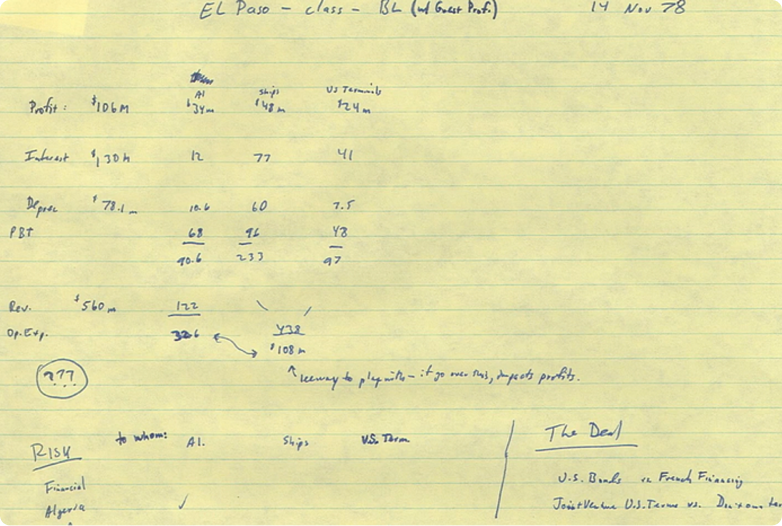 EL Paso - class - BL (w/ Guest Prof.) 14 Nov 78
Al ships US Terminals
Profit: $106M $34m $48m $24m
Interest $130M 12 77 41
Deprec $78.1m 10.6 60 7.5
PBT 68 96 48
90.6 233 97
Rev. $560m 122
Op. Exp. 32.6 438
$108m
???
leeway to play with - if go over this, impacts profits.
RISK to whom: Al. ships U.S. Term The Deal
Financial U.S. Bonds vs French Financing
Algeria ✓ Joint Venture U.S. Terms vs.